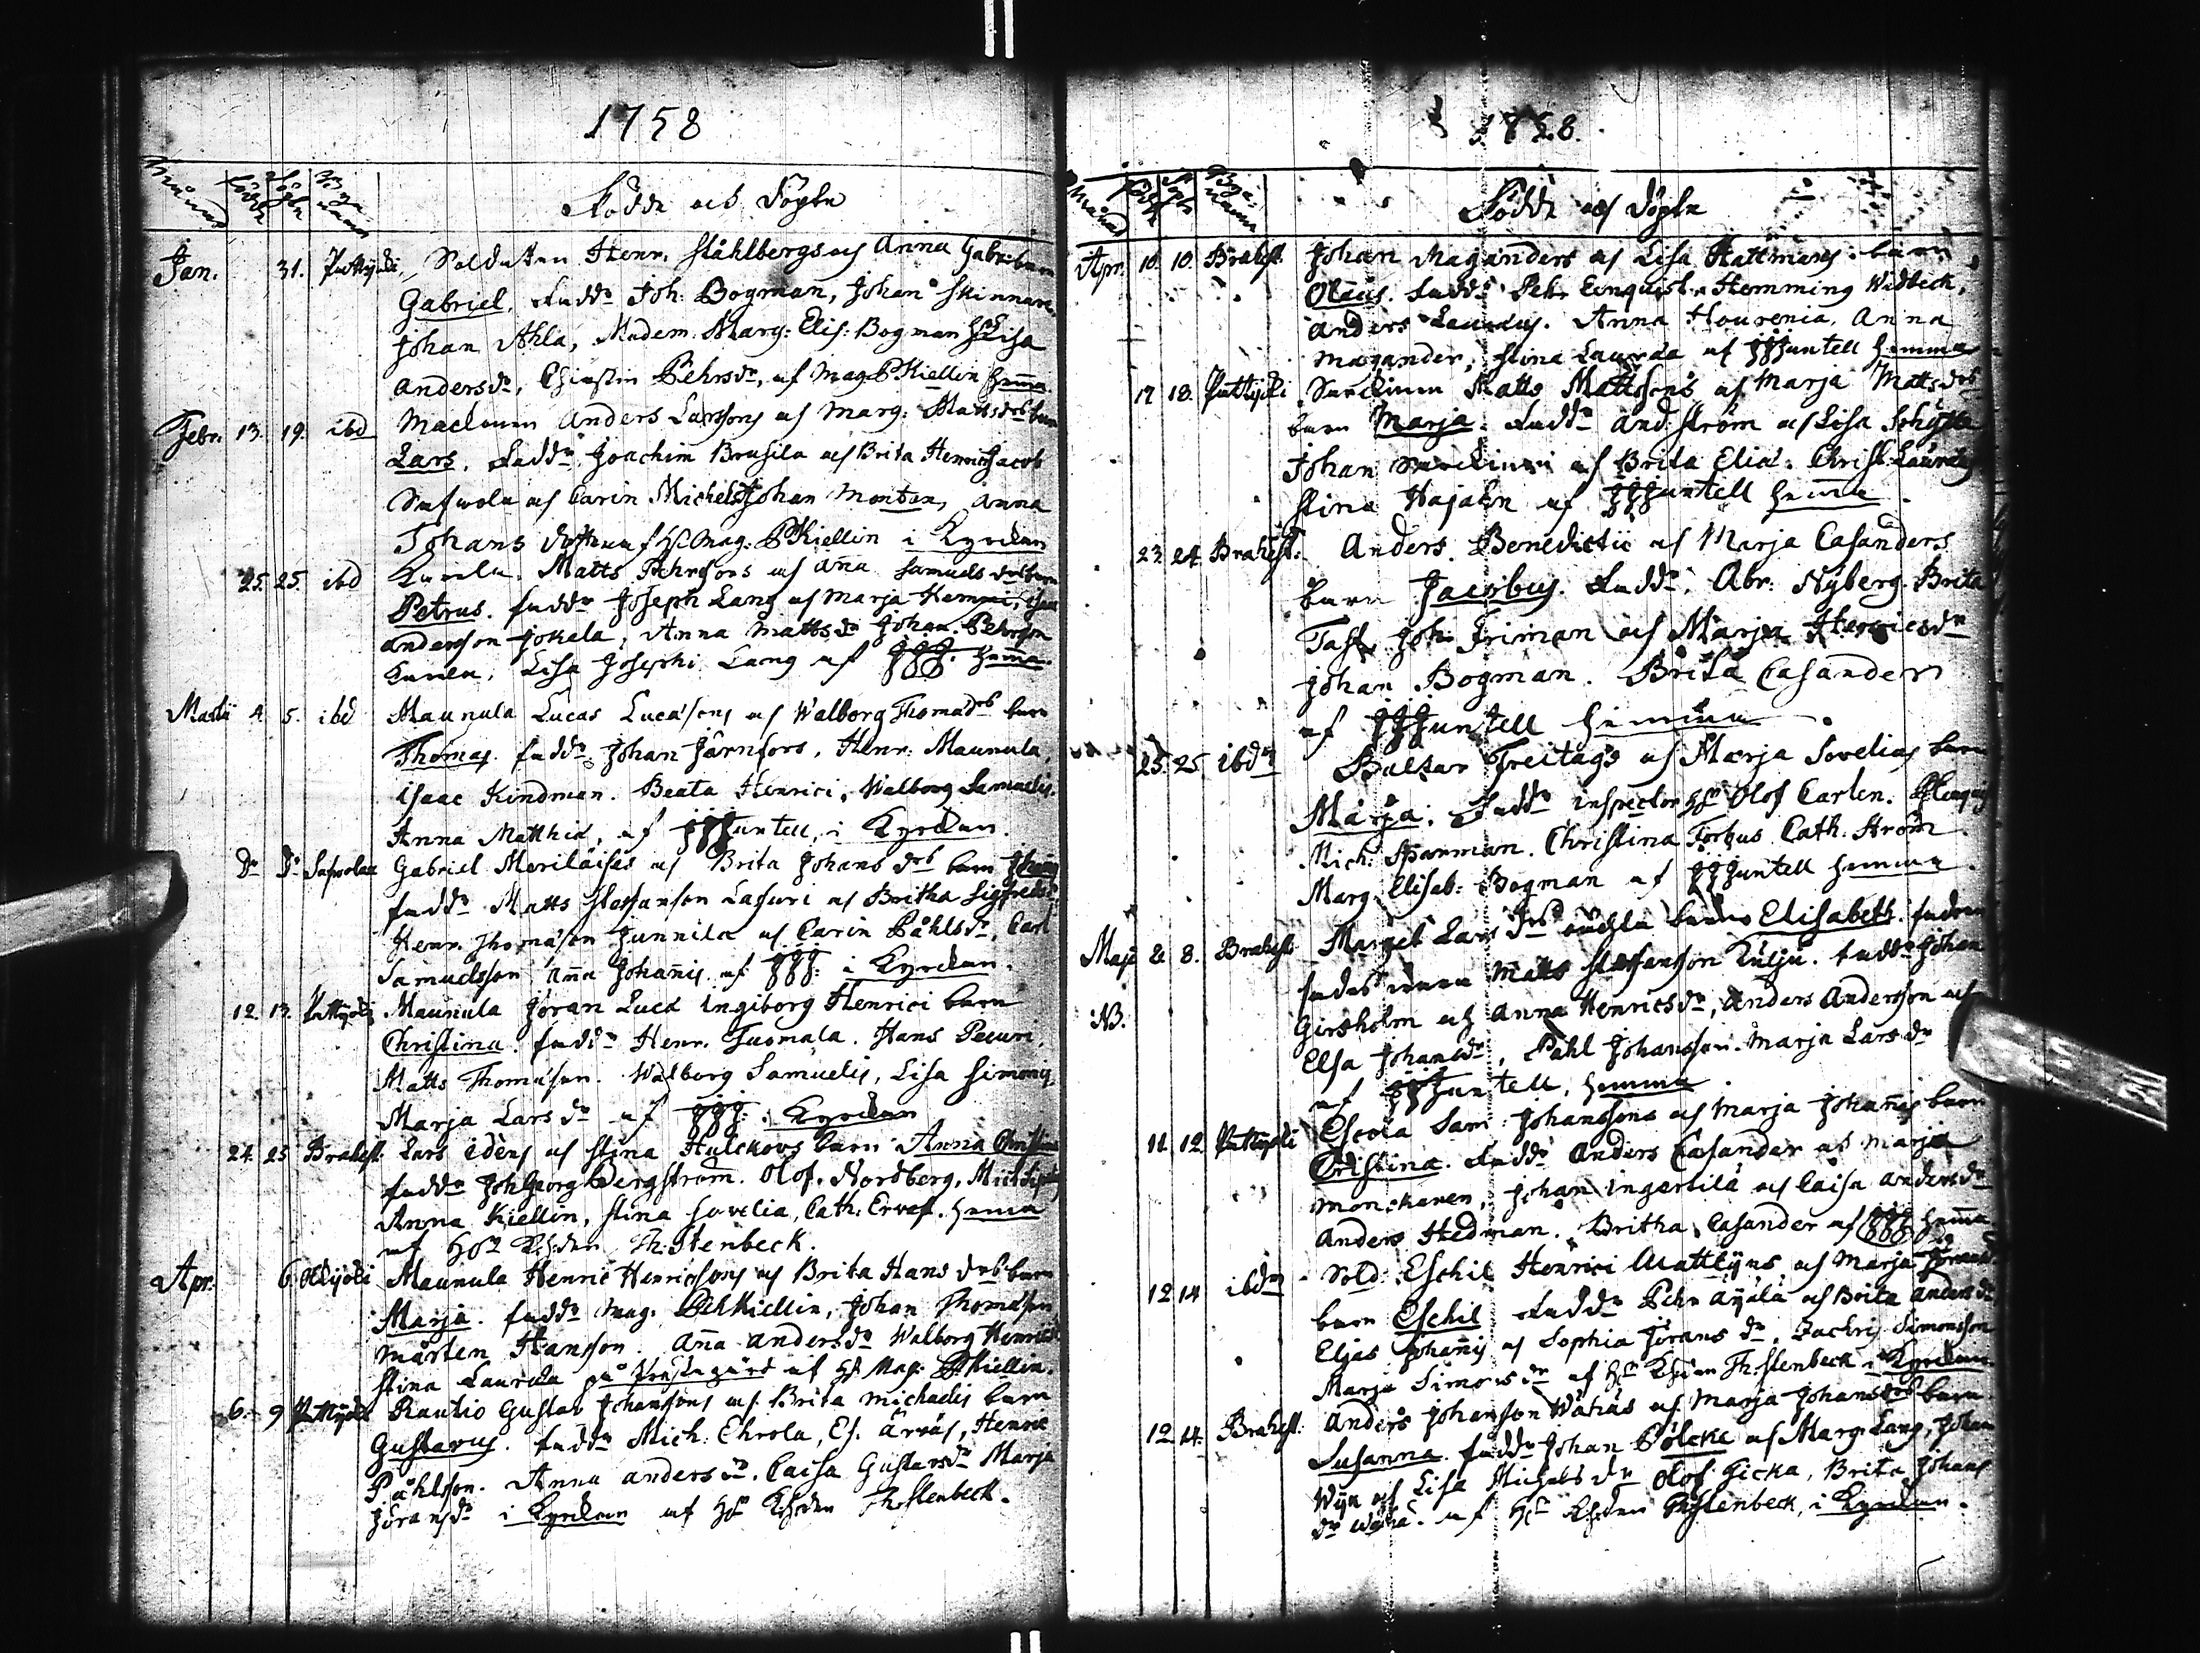 1758
Månad Födde Döpte Byanamn
Födde och Döpte
Jan. 31. Pattijoki Soldaten Henr. Ståhlbergs och Anna Gabr: barn
Gabriel. Fadd: Joh: Bogman, Johan Skinnare
Johan Ahla, Madem. Marg: Elis: Bogman Lisa
Andersdr, Christin Pehrsdr, af Mag. P Kiellin hem̄a.
Febr. 13. 19. ibd Anders Larssons och Marg: Mattsdrs barn
Lars. Fadd: Joachim Brusila och Brita Henrics Jacob
och Carin Michels Johan Monten, Anna
Johans dotter af Mag: P Kiellin i Kyrckan
25. 25. ibd Matts Pehrsons och Ana Samuels drs barn
Petrus. fadd: Joseph Lang och Marja Kemppi, Isaac
Andersson Jokela, Anna Mattsdr Johan Pehrsson
Lisa Josephi Lang af JJJ. hem̄a.
Martii 4. 5. ibd Maunula Lucas Lucassons och Walborg Thomædrs barn
Thomas. fadd: Johan Järnfors, Henr: Maunula,
Isaac Kindman. Beata Henrici, Walborg Samuelis.
Anna Matthiæ, af JJJuntell, i Kyrckan.
Do Do Gabriel Meriläisas och Brita Johans drs barn
fadd: Matts Staffanson Lasuri och Britha Sigfredsdr
Henr. Thomason Junnila och Carin Påhlsdr, Carl
Samuelsson Ana Johanis. af JJJ: i Kyrckan.
12. 13. Pattijoki Maunula Jöran Lucæ Ingiborg Henrici barn
Christina. fadd: Henr. Tuomala. Hans Pecuri.
Matts Thomason. Walborg Samuelis, Lisa Simonis,
Marja Lars dr af JJJ: i Kyrckan
24. 25 Brahest. Lars Idens och Stina Hulckovs barn Anna Christina
fadd: Joh Georg Bergström. Olof. Nordberg,
Anna Kiellin, Stina Sovelia, Cath: Ervast. hemma
af Hr Th: Stenbeck.
Apr. 6 Olkijoki Maunula Henric Henricssons och Brita Hans drs barn
Marja. fadd: Mag. Peh Kiellin, Johan Thomason
Mårten Hansson. Ana Andersdr Walborg Henrics
Stina Laurela på Prästegård af Hr Mag. P. Kiellin.
6. 9 Pattijoki Rautio Gustav Johanssons och Brita Michaelis barn
Gustavus. fadd: Mich: Ehrola, Es. Ärväs, Henric
Påhlsson. Anna Anders dr. Caisa Gustavsdr Marja
Jöransdr i Kyrckan af Hr Th: Stenbeck.
1758.
Månad Född Döpt Byanamn
Födde och Döpte
Apr. 10. 10. Brahest. Johan Maganders och Lisa Hattmans barn
Olaus. Fadd: Petr. Hemming Widbeck,
Anders Lauræus. Anna Hourenia, Anna
Magander, Stina Laurda af JJJuntell hemma
17 18. Pattijoki Matts Mattssons och Marja Mattsdrs
barn Marja. Fadd: And. Ström och Lisa Schytte
Johan och Brita Eliæ: Christ:
Stina Hajalen af JJJuntell hem̄a.
23. 24. Brahest. Anders Benedictii och Marja Casanders
barn Jacobus. Fadd: Abr: Nyberg. Brita
Tast Joh. Friman och Marja Henricsdr
Johan Bogman. Brita Casander
af JJJuntell hemma.
25. 25 ibdm Baltzar Freitags och Marja Sovelias barn
Marja. Fadd: Inspector Hr Olof Carlen.
Mich: Sparman. Christina Forbus Cath. Ström.
Marg: Elisab: Bogman af JJJuntell hemma.
Maji 8. 8. Brahest. Marget Lars drs oächta barn Elisabeth. fadren
Matts Staffansson Kulju. Fadd: Johan
NB. Girsholm och Anna Henricsdr, Anders Andersson och
Elsa Johansdr, Påhl Johansson. Marja Lars dr
af JJJuntell, hemma.
11. 12. Pattijoki Sam: Johanssons och Marja Johanis barn
Christina. Fadd: Anders Casander och Marja
Monckanen, Johan Ingertilä och Caisa Andersdr
Anders Hedman. Britha Casander af JJJ hem̄a
12 14 ibdm Sold: Eschil Henrici Mattlyns och Marja
barn Eschil Fadd: Pehr Äyälä och Brita Anders dr
Eljas Johanis och Sophia Jörans dr. Zachris Simonsson
Marja Simons dr af Hr Th: Stenbeck i Kyrckan
12. 14. Brahest. Anders Johanson Wähäs och Marja Johansdrs barn
Susanna. fadd: Johan Pölcke och Marg: Lang, Johan
och Lisa Michels dr Olof Jicka, Brita Johans
dr Wähä. af Hr Th Stenbeck, i Kyrckan.